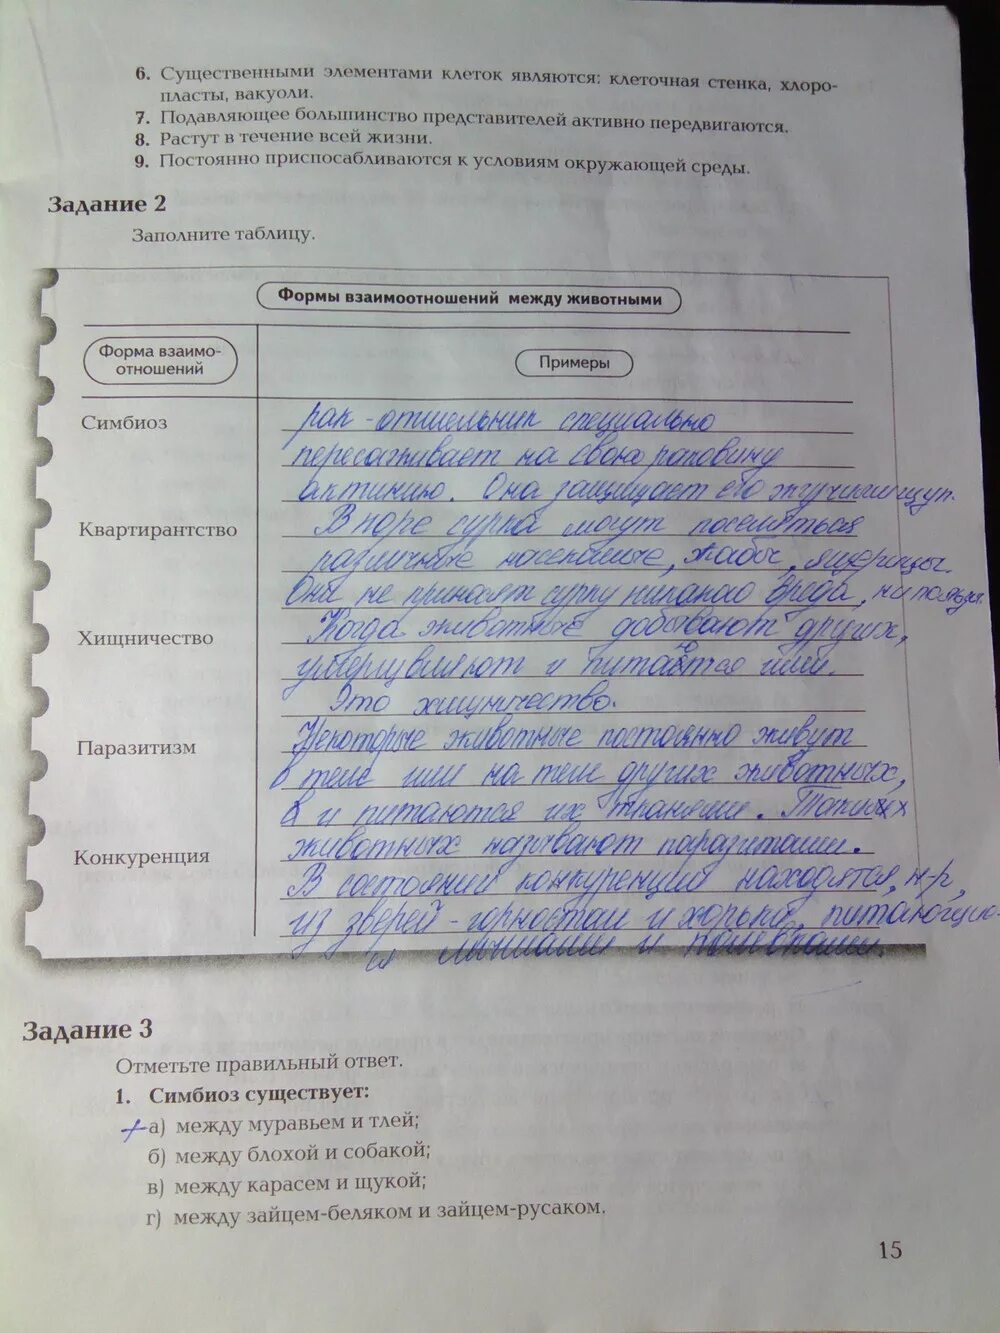 6. Существенными элементами клеток являются: клеточная стенка, хлоро-
пласты, вакуоли.
7. Подавляющее большинство представителей активно передвигаются.
8. Растут в течение всей жизни.
9. Постоянно приспосабливаются к условиям окружающей среды.
Задание 2
Заполните таблицу.
Формы взаимоотношений между животными
Форма взаимо-
отношений
Примеры
Симбиоз
рак-отшельник специально
пересаживает на свою раковину
актинию. Она защищает его жгучими щуп.
Квартирантство
В норе сурка могут поселиться
различные насекомые, жабы, ящерицы.
Они не приносят сурку никакого вреда, ни пользы.
Хищничество
Когда животные добывают других,
умерщвляют и питаются ими.
Это хищничество.
Паразитизм
Некоторые животные постоянно живут
в теле или на теле других животных,
и питаются их тканями. Таких
животных называют паразитами.
Конкуренция
В состоянии конкуренции находятся, н-р,
из зверей - горностаи и хорька, питающие
ся мышами и полёвками.
Задание 3
Отметьте правильный ответ.
1. Симбиоз существует:
а) между муравьем и тлей;
б) между блохой и собакой;
в) между карасем и щукой;
г) между зайцем-беляком и зайцем-русаком.
15